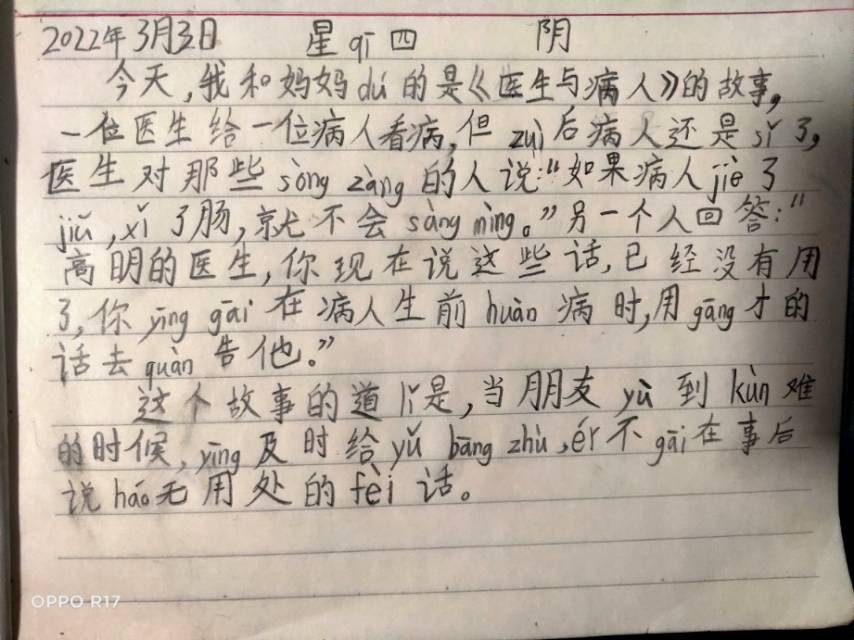 2022年3月3日 星qī四 阴
今天，我和妈妈dú的是《医生与病人》的故事，
一位医生给一位病人看病，但zuì后病人还是sǐ了，
医生对那些sòng zàng的人说：“如果病人jiè了
jiǔ，xǐ了肠，就不会sàng mìng。”另一个人回答：“
高明的医生，你现在说这些话，已经没有用
了，你yīng gāi在病人生前huàn病时，用gāng才的
话去quàn告他。”
这个故事的道lǐ是，当朋友yù到kùn难
的时候，yīng及时给yǔ bāng zhù，ér不gāi在事后
说háo无用处的fèi话。
OPPO R17